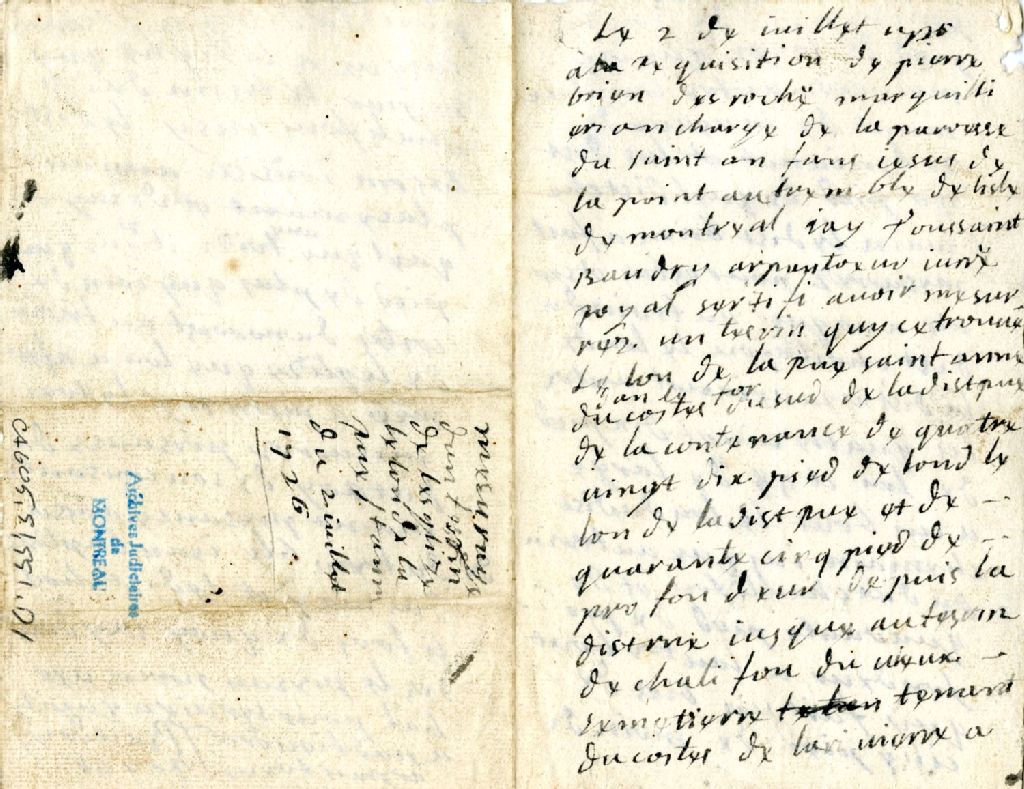 Le 2 de iuillet 1726
ala requisition de pierre
brien desroche marguilli
er ancharge de la paroesse
du saint anfans iesus de
la point autremble de lisle
de montreal iay Toussaint
Baudry arpanteur iuré
royal sertifi avoir mesur
rez un terin quy ce trouve
Le lon de la rue saint anne
an le for
du costes du sud de ladist rue
de la contenance de quatre
vingt dix pied de lond le
lon de ladist rue et de -
quarante cinq pied de -
profondeur depuis la
dist rue iusque au
de chalifou du vieux -
semetierre tenant
du costes de la riviere a
mesurage
dun terin
de lesglise
le lon de la
rue st anne
du 2 iuillet
1726
Archives Judiciaires
de
MONTREAL
CA605,S151,D1